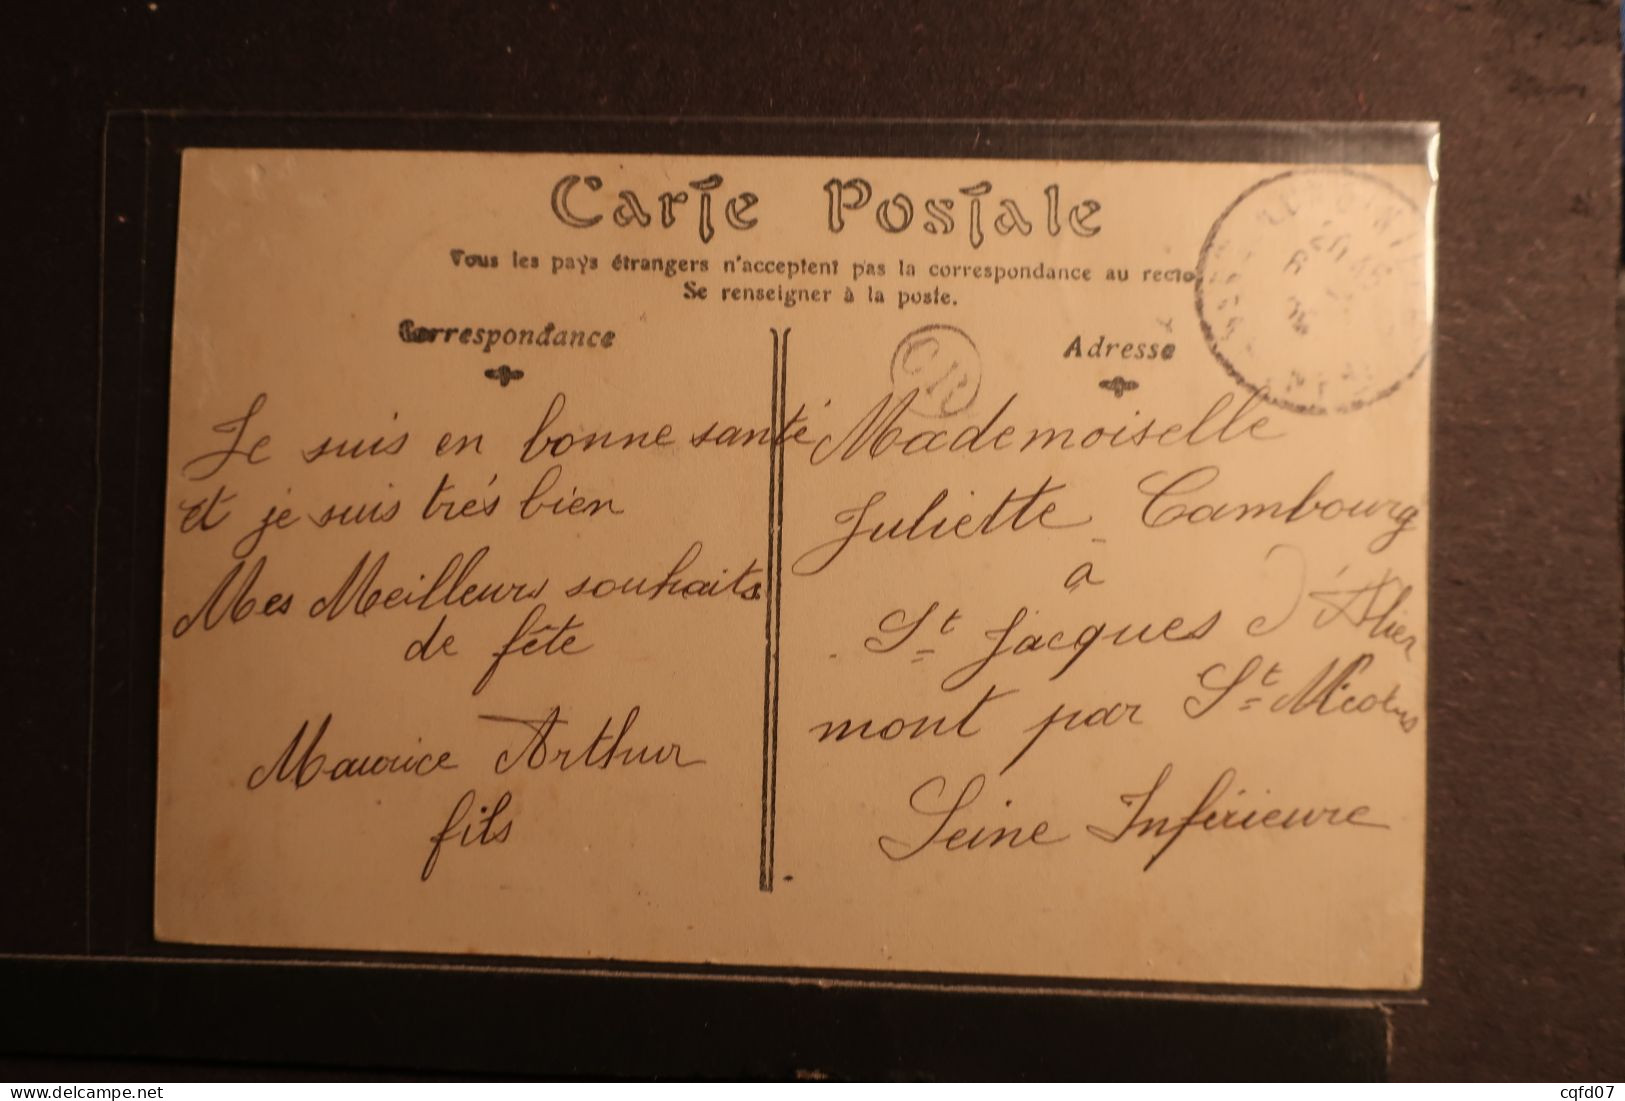 Carte Postale
Tous les pays étrangers n'acceptent pas la correspondance au recto
Se renseigner à la poste.
Correspondance
Adresse
Je suis en bonne santé
et je suis très bien
Mes Meilleurs souhaits
de fête
Maurice Arthur
fils
Mademoiselle
Juliette Cambourg
a
St Jacques d'Alier
mont par St Nicolas
Seine Inférieure
cqfd07